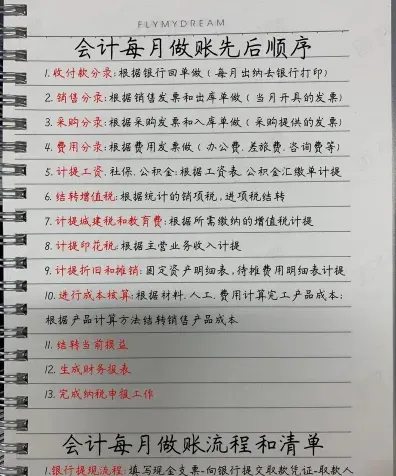 FLYMYDREAM
会计每月做账先后顺序
1. 收付款分录: 根据银行回单做 ( 每月出纳去银行打印)
2. 销售分录: 根据销售发票和出库单做 ( 当月开具的发票)
3. 采购分录: 根据采购发票和入库单做 ( 采购提供的发票)
4. 费用分录: 根据费用发票做 ( 办公费. 差旅费. 咨询费等)
5. 计提工资. 社保. 公积金: 根据工资表. 公积金汇缴单计提
6. 结转增值税: 根据统计的销项税, 进项税结转
7. 计提城建税和教育费: 根据所需缴纳的增值税计提
8. 计提印花税: 根据主营业务收入计提
9. 计提折旧和摊销: 固定资产明细表, 待摊费用明细表计提
10. 进行成本核算: 根据材料. 人工. 费用计算完工产品成本;
根据产品计算方法结转销售产品成本
11. 结转当前损益
12. 生成财务报表
13. 完成纳税申报工作
会计每月做账流程和清单
1.银行提现流程: 填写现金支票-向银行提交取款凭证-取款人